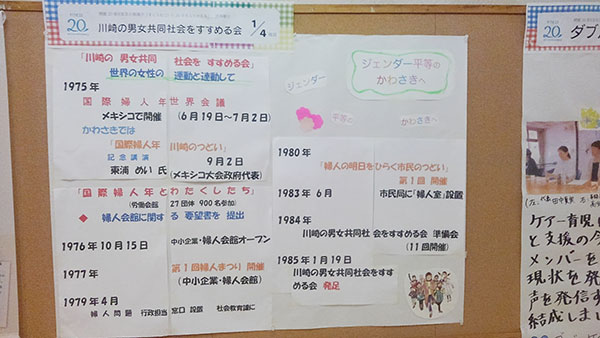 20
川崎の男女共同社会をすすめる会
1/4
「川崎の男女共同 社会を すすめる会」
世界の女性の 運動と連動して
1975年
国際婦人年世界会議
メキシコで開催 (6月19日～7月2日)
かわさきでは
「国際婦人年 川崎のつどい」
記念講演 9月2日
東浦 めい 氏 (メキシコ大会政府代表)
「国際婦人年とわたくしたち」
(労働会館 27団体 900名参加)
◆ 婦人会館に関する 要望書を 提出
1976年10月15日 中小企業・婦人会館オープン
1977年 第1回婦人まつり 開催
(中小企業・婦人会館)
1979年4月
婦人問題 行政担当 窓口 設置 社会教育課に
ジェンダー
平等の
かわさきへ
ジェンダー平等の
かわさきへ
1980年
「婦人の明日をひらく市民のつどい」
第1回 開催
1983年6月 市民局に「婦人室」設置
1984年
川崎の男女共同社会をすすめる会 準備会
(11回開催)
1985年1月19日
川崎の男女共同社会をすすめる会 発足
20
ダブ
ケアー育児
と支援の
メンバーを
現状を発
声を発信す
結成しま